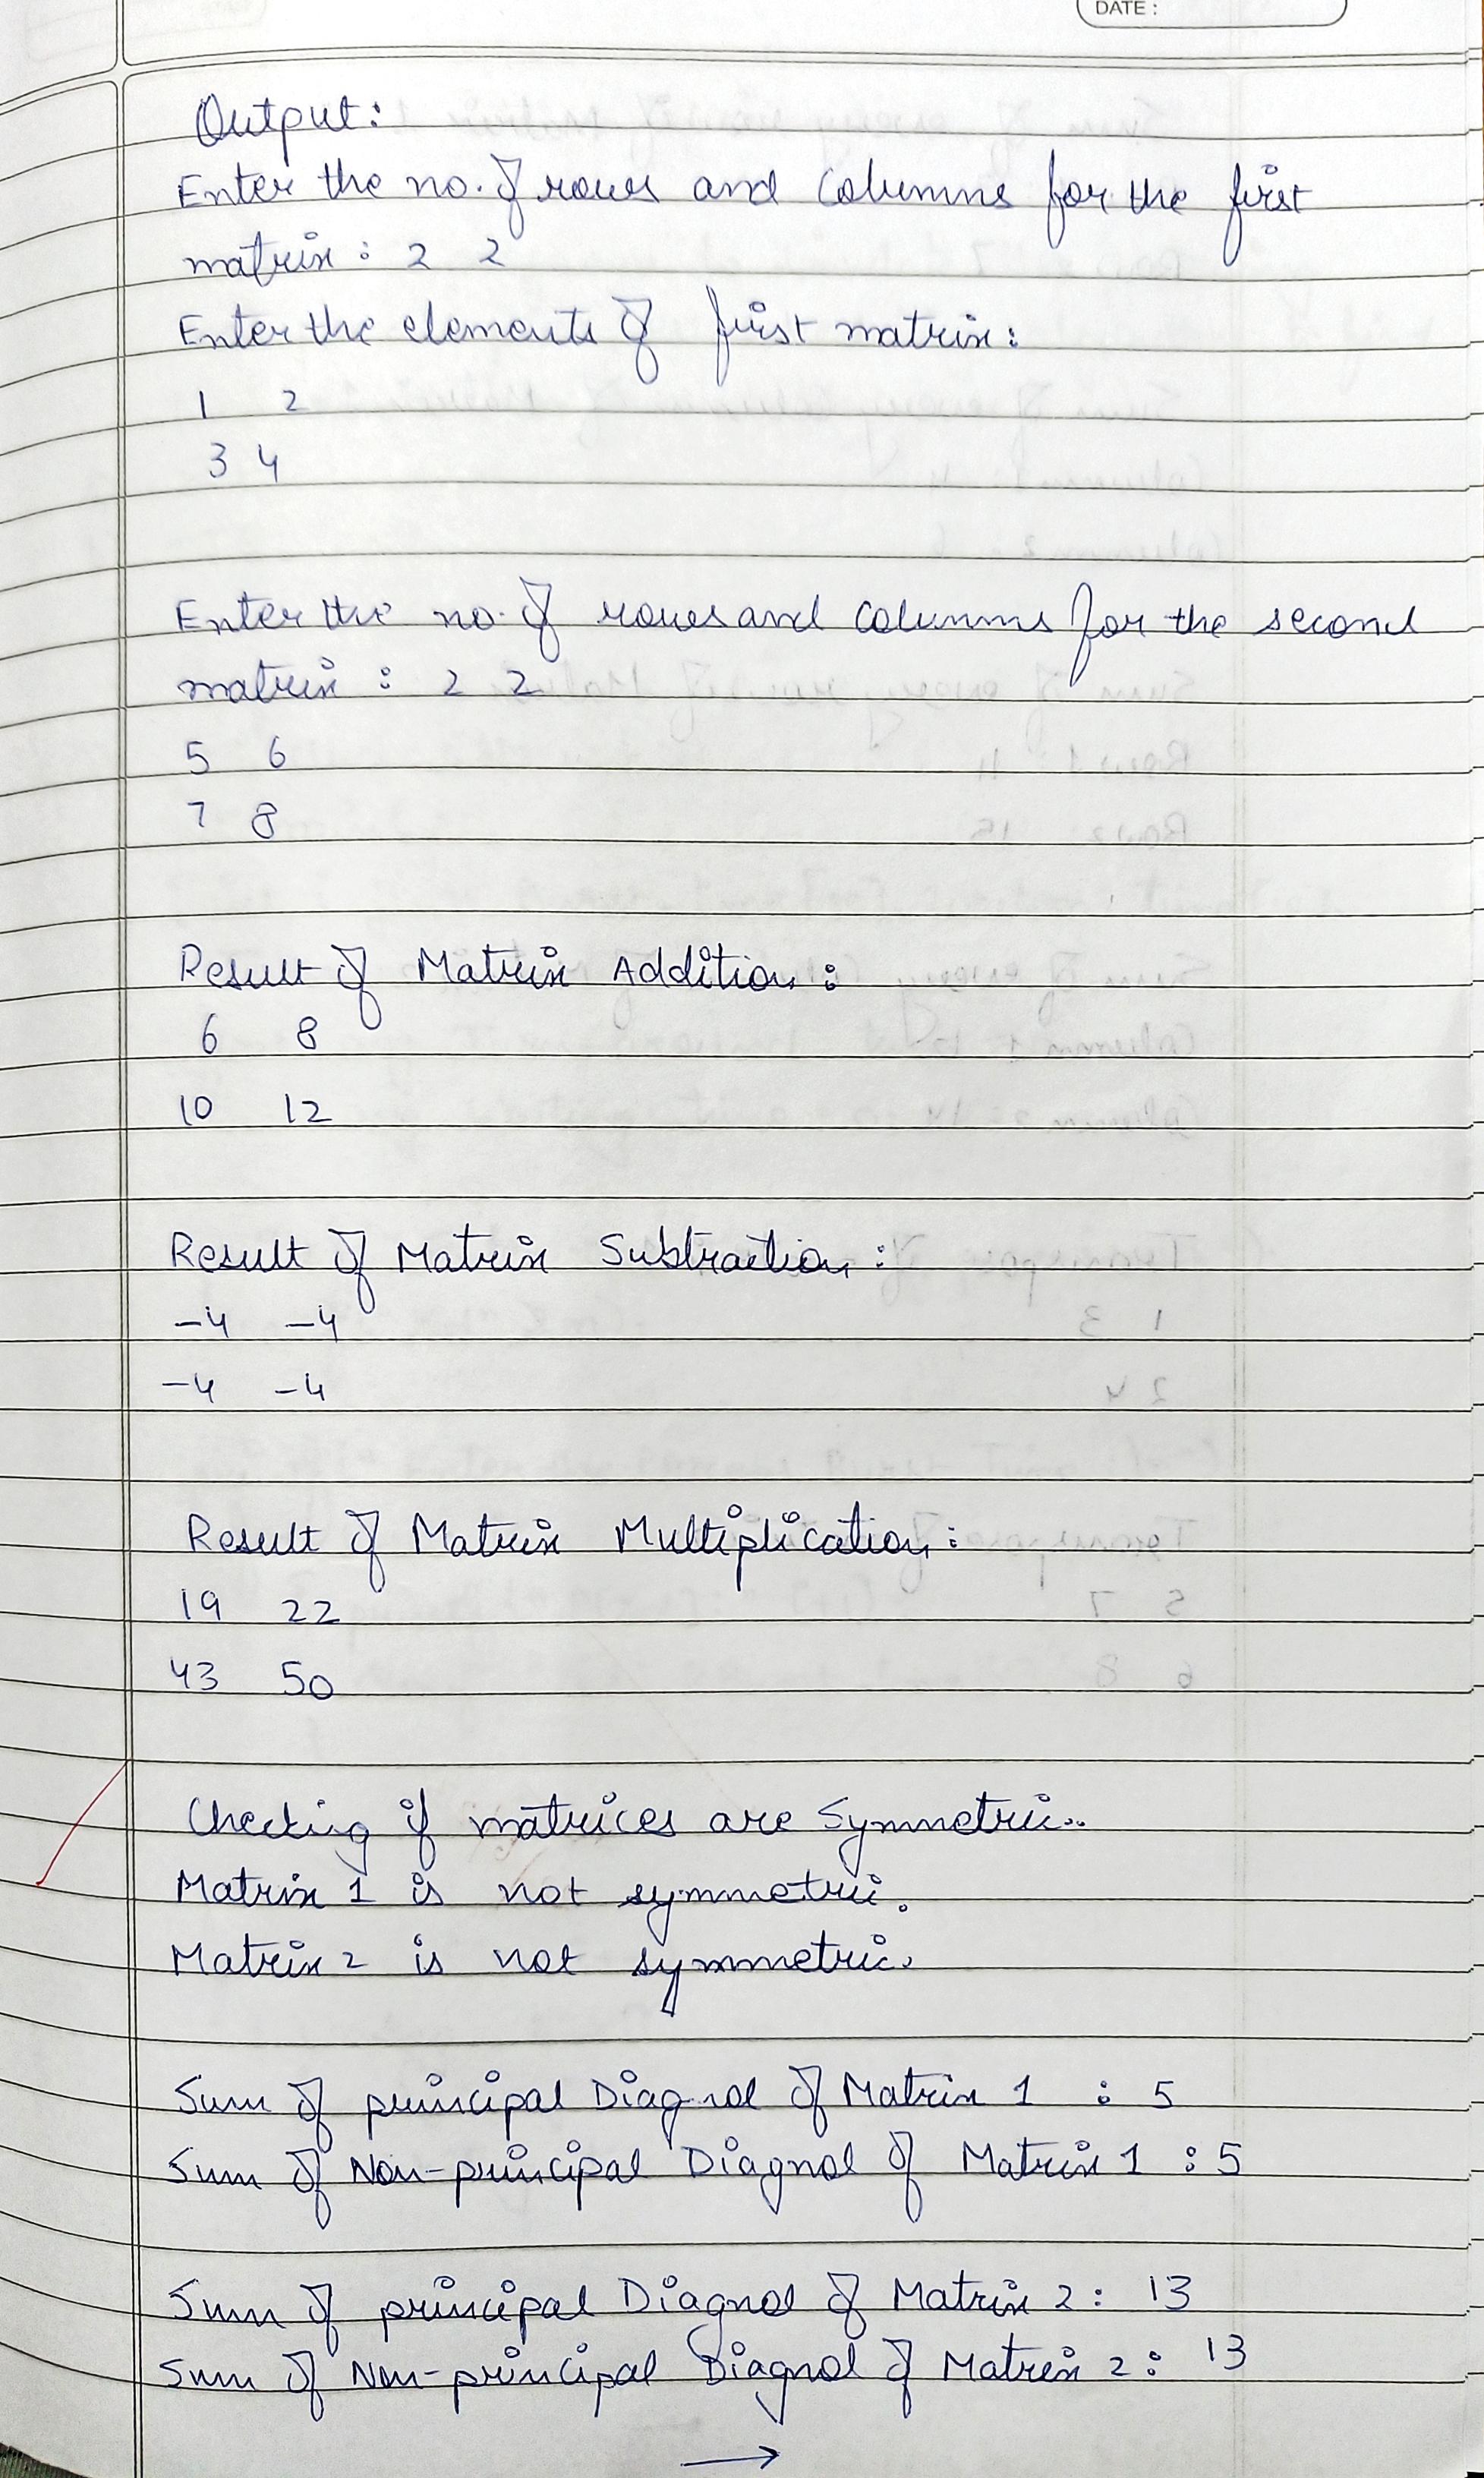 DATE :
Output:
Enter the no. of rows and columns for the first
matrix : 2 2
Enter the elements of first matrix :
1 2
3 4
Enter the no. of rows and columns for the second
matrix : 2 2
5 6
7 8
Result of Matrix Addition :
6 8
10 12
Result of Matrix Subtraction :
-4 -4
-4 -4
Result of Matrix Multiplication :
19 22
43 50
Checking if matrices are Symmetric..
Matrix 1 is not symmetric.
Matrix 2 is not symmetric.
Sum of principal Diagnol of Matrix 1 : 5
Sum of Non-principal Diagnol of Matrix 1 : 5
Sum of principal Diagnol of Matrix 2 : 13
Sum of Non-principal Diagnol of Matrix 2 : 13
→